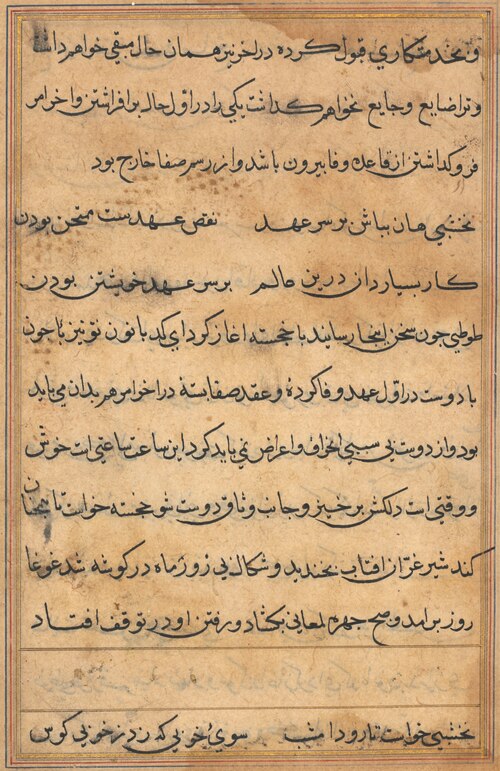 و بخدمتکاری قبول کرده در اخر نیز همان حال مبقی خواهم داشت
و ترا ضایع و جایع نخواهم کذاشت یکی را در اول حال برافراشتن و اخر امر
فروکذاشتن از قاعده وفا بیرون باشد و از رسم صفا خارج بود
نخشبی هان بباش بر سر عهد نقض عهدست ممتحن بودن
کار بسیار دان درین عالم بر سر عهد خویشتن بودن
طوطی چون سخن اینجا رسانید با خجسته اغاز کرد ای کدبانو تو نیز با چون
با دوست در اول عهد وفا کرده و عقد صفا بسته در اخر امر هم بدان می باید
بود و از دوست بی سببی انحراف و اعراض نمی باید کرد این ساعت ساعتی است خوش
و وقتی است دلکش برخیز و جانب وثاق دوست شو خجسته خواست تا همچنان
کند شیر غران افتاب بخندید و شکال بی زور ماه در کوشه شد غوغا
روز برامد و صبح چهره لمعانی بکشاد و رفتن او در توقف افتاد
نخشبی خواست تا رود امشب سوی خوبی که زد ز خوبی کوس